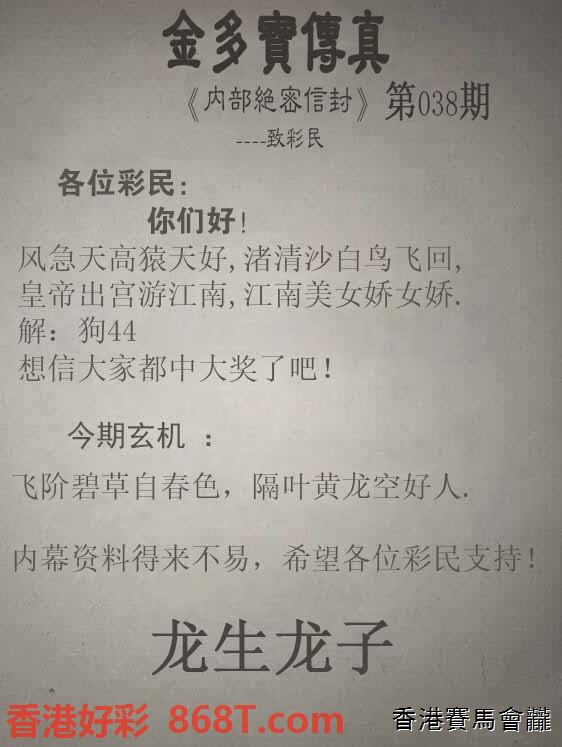 金多寶傳真
《内部絕密信封》第038期
----致彩民
各位彩民:
你们好!
风急天高猿天好,渚清沙白鸟飞回,
皇帝出宫游江南,江南美女娇女娇.
解：狗44
想信大家都中大奖了吧!
今期玄机 ：
飞阶碧草自春色，隔叶黄龙空好人.
内幕资料得来不易，希望各位彩民支持!
龙生龙子
香港好彩 868T.com
香港賽馬會